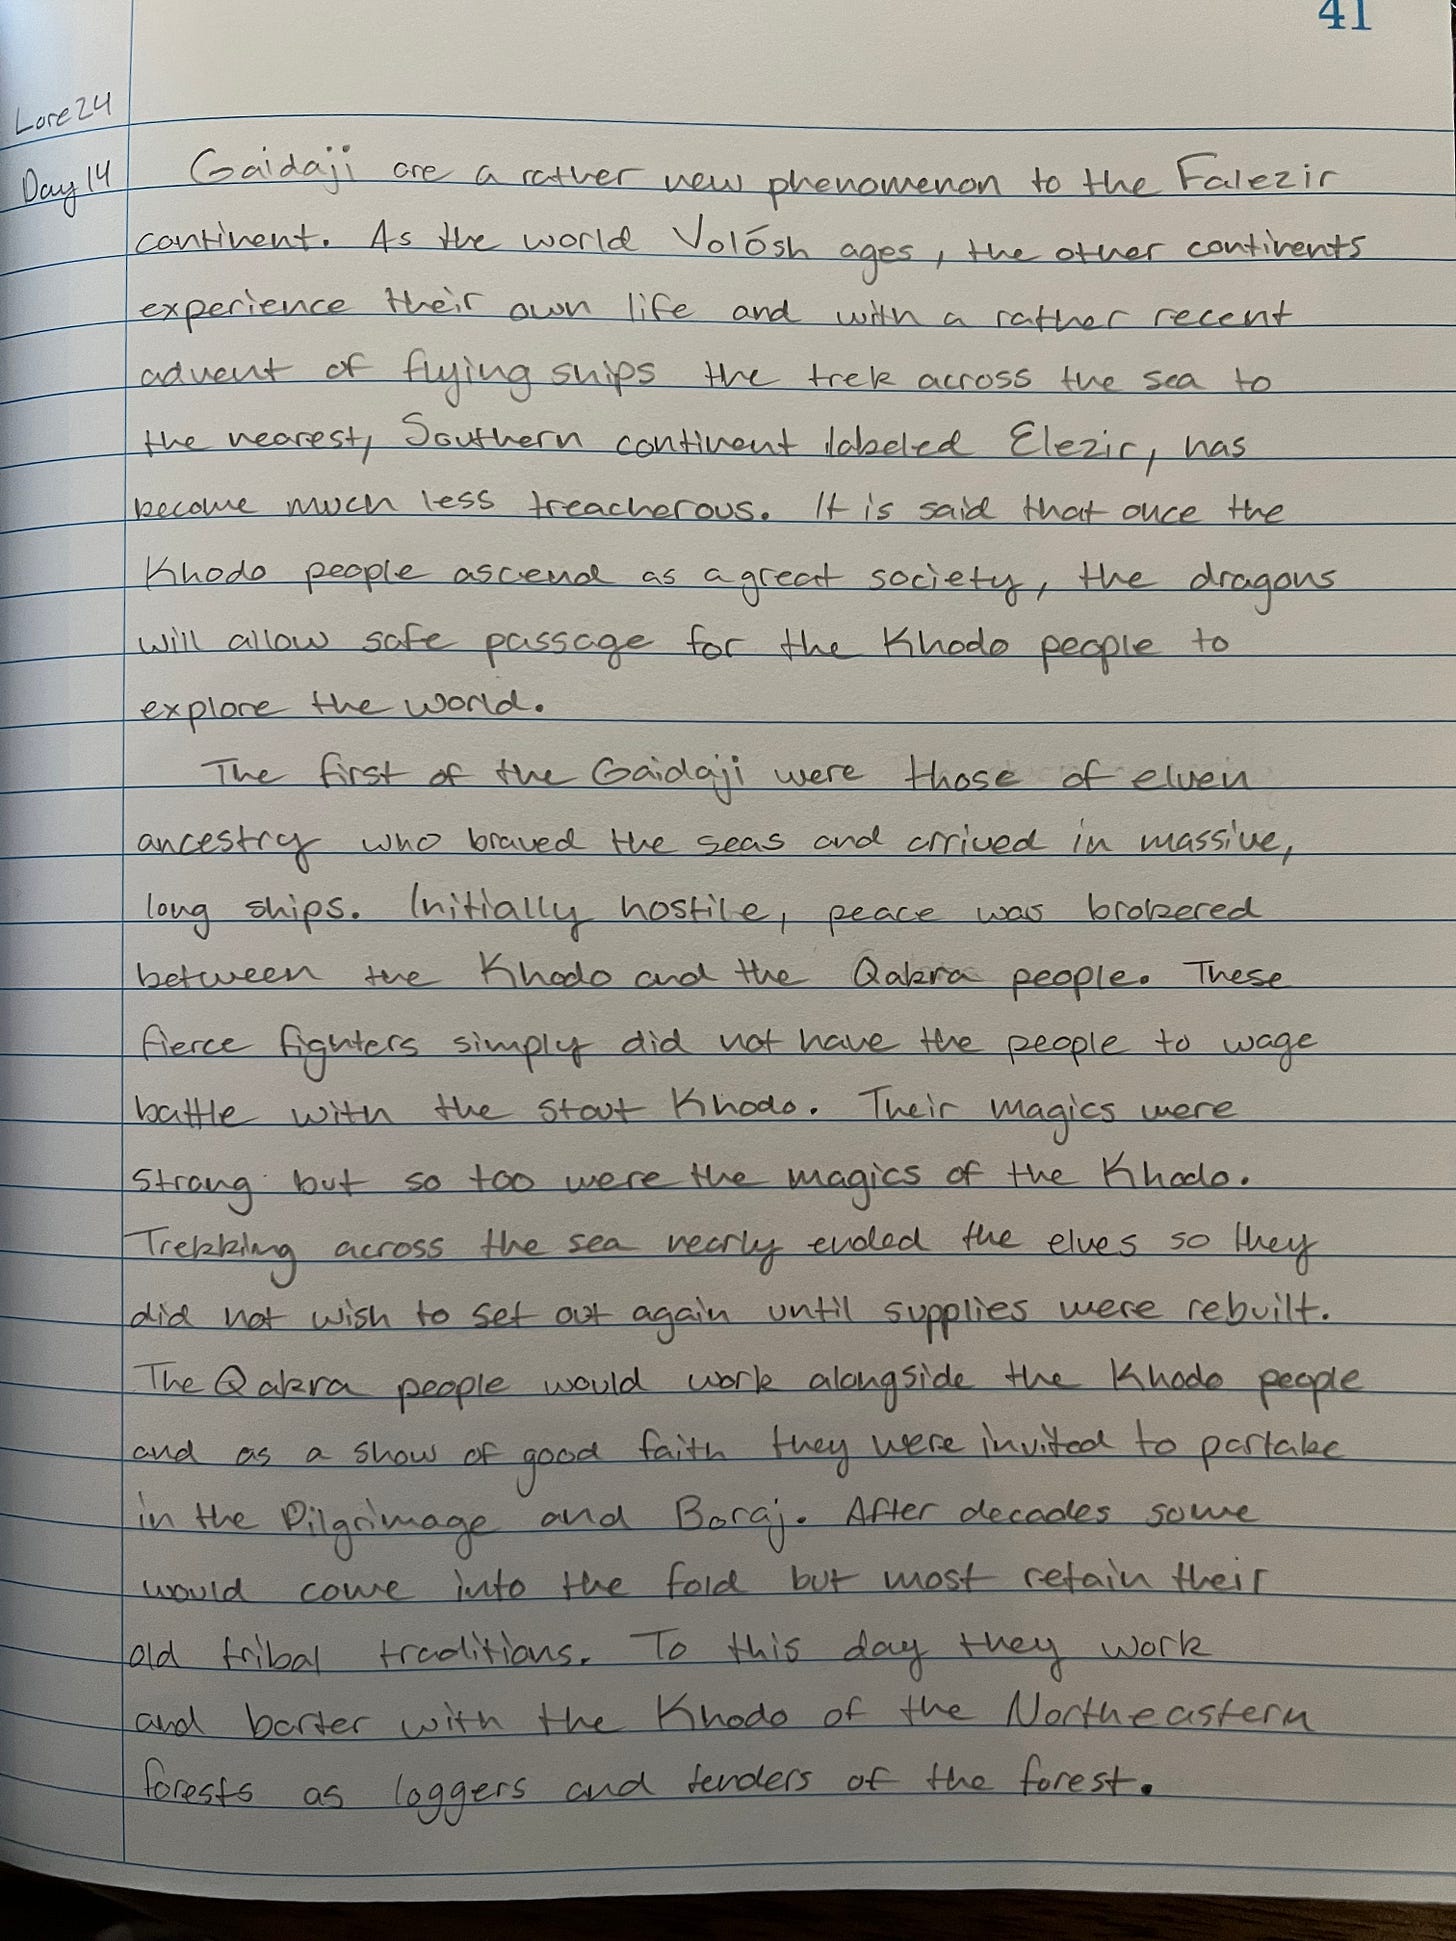 41
Lore24
Day 14
Gaidaji are a rather new phenomenon to the Falezir
continent. As the world Volósh ages, the other continents
experience their own life and with a rather recent
advent of flying ships the trek across the sea to
the nearest, Southern continent labeled Elezir, has
become much less treacherous. It is said that once the
Khodo people ascend as a great society, the dragons
will allow safe passage for the Khodo people to
explore the world.
The first of the Gaidaji were those of elven
ancestry who braved the seas and arrived in massive,
long ships. Initially hostile, peace was brokered
between the Khodo and the Qakra people. These
fierce fighters simply did not have the people to wage
battle with the stout Khodo. Their magics were
strong but so too were the magics of the Khodo.
Trekking across the sea nearly ended the elves so they
did not wish to set out again until supplies were rebuilt.
The Qakra people would work alongside the Khodo people
and as a show of good faith they were invited to partake
in the Pilgrimage and Boraj. After decades some
would come into the fold but most retain their
old tribal traditions. To this day they work
and barter with the Khodo of the Northeastern
forests as loggers and tenders of the forest.